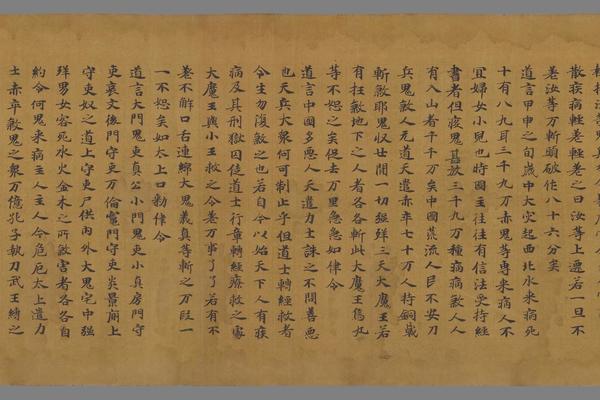 散疾病輕者輕者之曰汝等上遷若一旦不
差汝等万斬頭破作八十六分矣
道言甲申之旬歲中大灾起西北水来病死
十有八九耳三千九万赤鬼等專来病人不
宜婦女小兒也時國主往往有信法受持經
書者但疫鬼放三千九万種病病煞人人
有入山者千千万矣中國荒流人民不安刀
兵鬼煞人无道天遣赤卒七十万人持銅戟
斬煞耶鬼收廿間一切强殍三天大魔王若
有狂煞地下之人者各各斬此大魔王為丸
等不恕之矣促去万里急急如律令
道言中國多惡人天遣力士誅之不問善悪
也天兵大衆何可制止乎但道士轉經救者
令生勿復煞之也若自今以始天下人有疾
病及其刑獄囚徒道士行章轉經療救之處
大魔王與小王救之令差万事了了若有不
差不解口右連綿大鬼義真等斬之万段一
一不恕矣如太上口勅律令
道言大門鬼吏真公小門鬼吏小真房門守
吏襄文後門守吏万倫竈門守吏炎景崩上
守吏奴之道上守吏尸供内外大鬼宅中强
殍男女客死水火金木之所煞害者各各自
約令何鬼来病主人主人今危厄太上遣力
士赤卒煞鬼之衆万億孔子執刀武王縛之